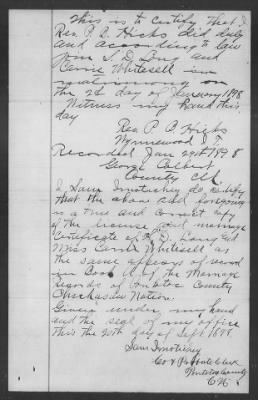 This is to Certify that I
Rev. P. O. Hicks did duly
and according to law
Join S. D. Long and
Carrie Whitesell in
matrimony on
the 26 day of January 1898
Witness my hand this
day
Rev P. O. Hicks
Wynnewood I. T.
Recorded Jan 29th 1898
Geo. Colbert
County Clk
I, Sam do, Certify
that the above and foregoing
is a true and correct copy
of the license and marriage
Certificate of S. D. Long and
Miss Carrie Whitesell as
the same appears of record
in Book A of the Marriage
records of Pontotoc County
Chickasaw Nation.
Given under my hand
and the seal of my office
this the 20th day of Sept 1898
Sam
Co & Probate Clerk
Pontotoc County
C. N.